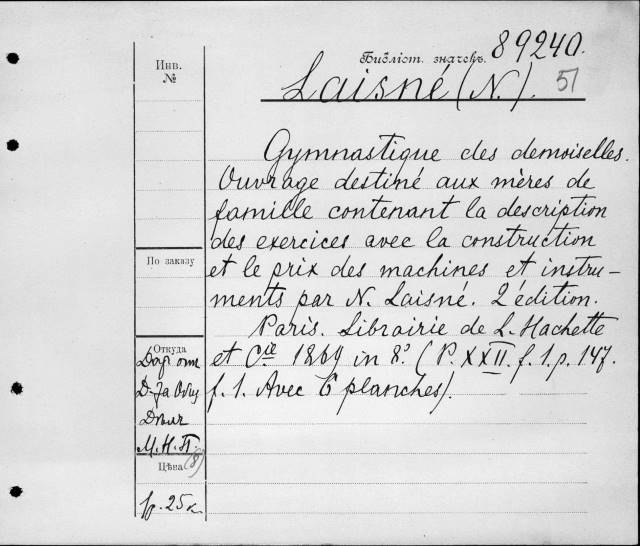 Библіот. значекъ. 89240.
Инв.
№
Laisné (N.). 51
Gymnastique des demoiselles.
Ouvrage destiné aux mères de
famille contenant la description
des exercices avec la construction
et le prix des machines et instru-
ments par N. Laisné. 2 édition.
Paris. Librairie de L. Hachette
et Cie 1869 in 8º. (P. XXII. f. 1. p. 147.
f. 1. Avec 6 planches).
По заказу
Откуда
Дар отт
Д-
М. Н. П.
(8)
Цѣна
1р. 25к